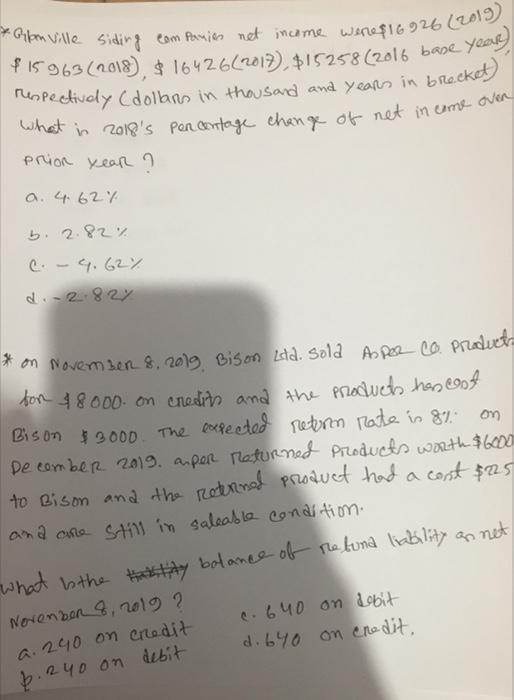 * Glbnville siding companies net income were $16926 (2019)
$15963 (2018), $16426 (2017), $15258 (2016 base year)
respectively (dollars in thousand and years in bracket)
What is 2018's percentage change of net income over
prior year ?
a. 4.62%
b. 2.82%
c. - 4.62%
d. - 2.82%
* on November 8, 2019, Bison Ltd. sold Asper CO. product
for $8000. on credits and the products has cost
Bison $3000. The expected return rate is 8%. on
December 2019. asper returned products worth $6000
to Bison and the returned product had a cost $225
and are still in saleable condition.
what is the balance of refund liability as net
November 8, 2019 ?
a. 240 on credit
b. 240 on debit
c. 640 on debit
d. 640 on credit.